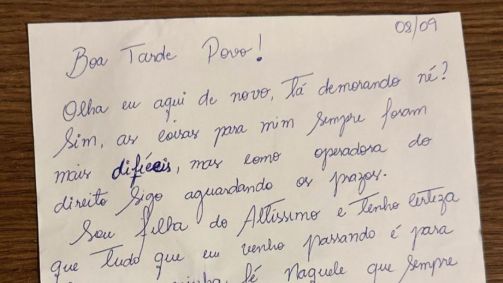 08/09
Boa Tarde Povo!
Olha eu aqui de novo, tá demorando né?
Sim, as coisas para mim sempre foram
mais difíceis, mas como operadora do
direito sigo aguardando os prazos.
Sou filha do Altíssimo e tenho certeza
que tudo que eu venho passando é para
minha fé Naquele que sempre